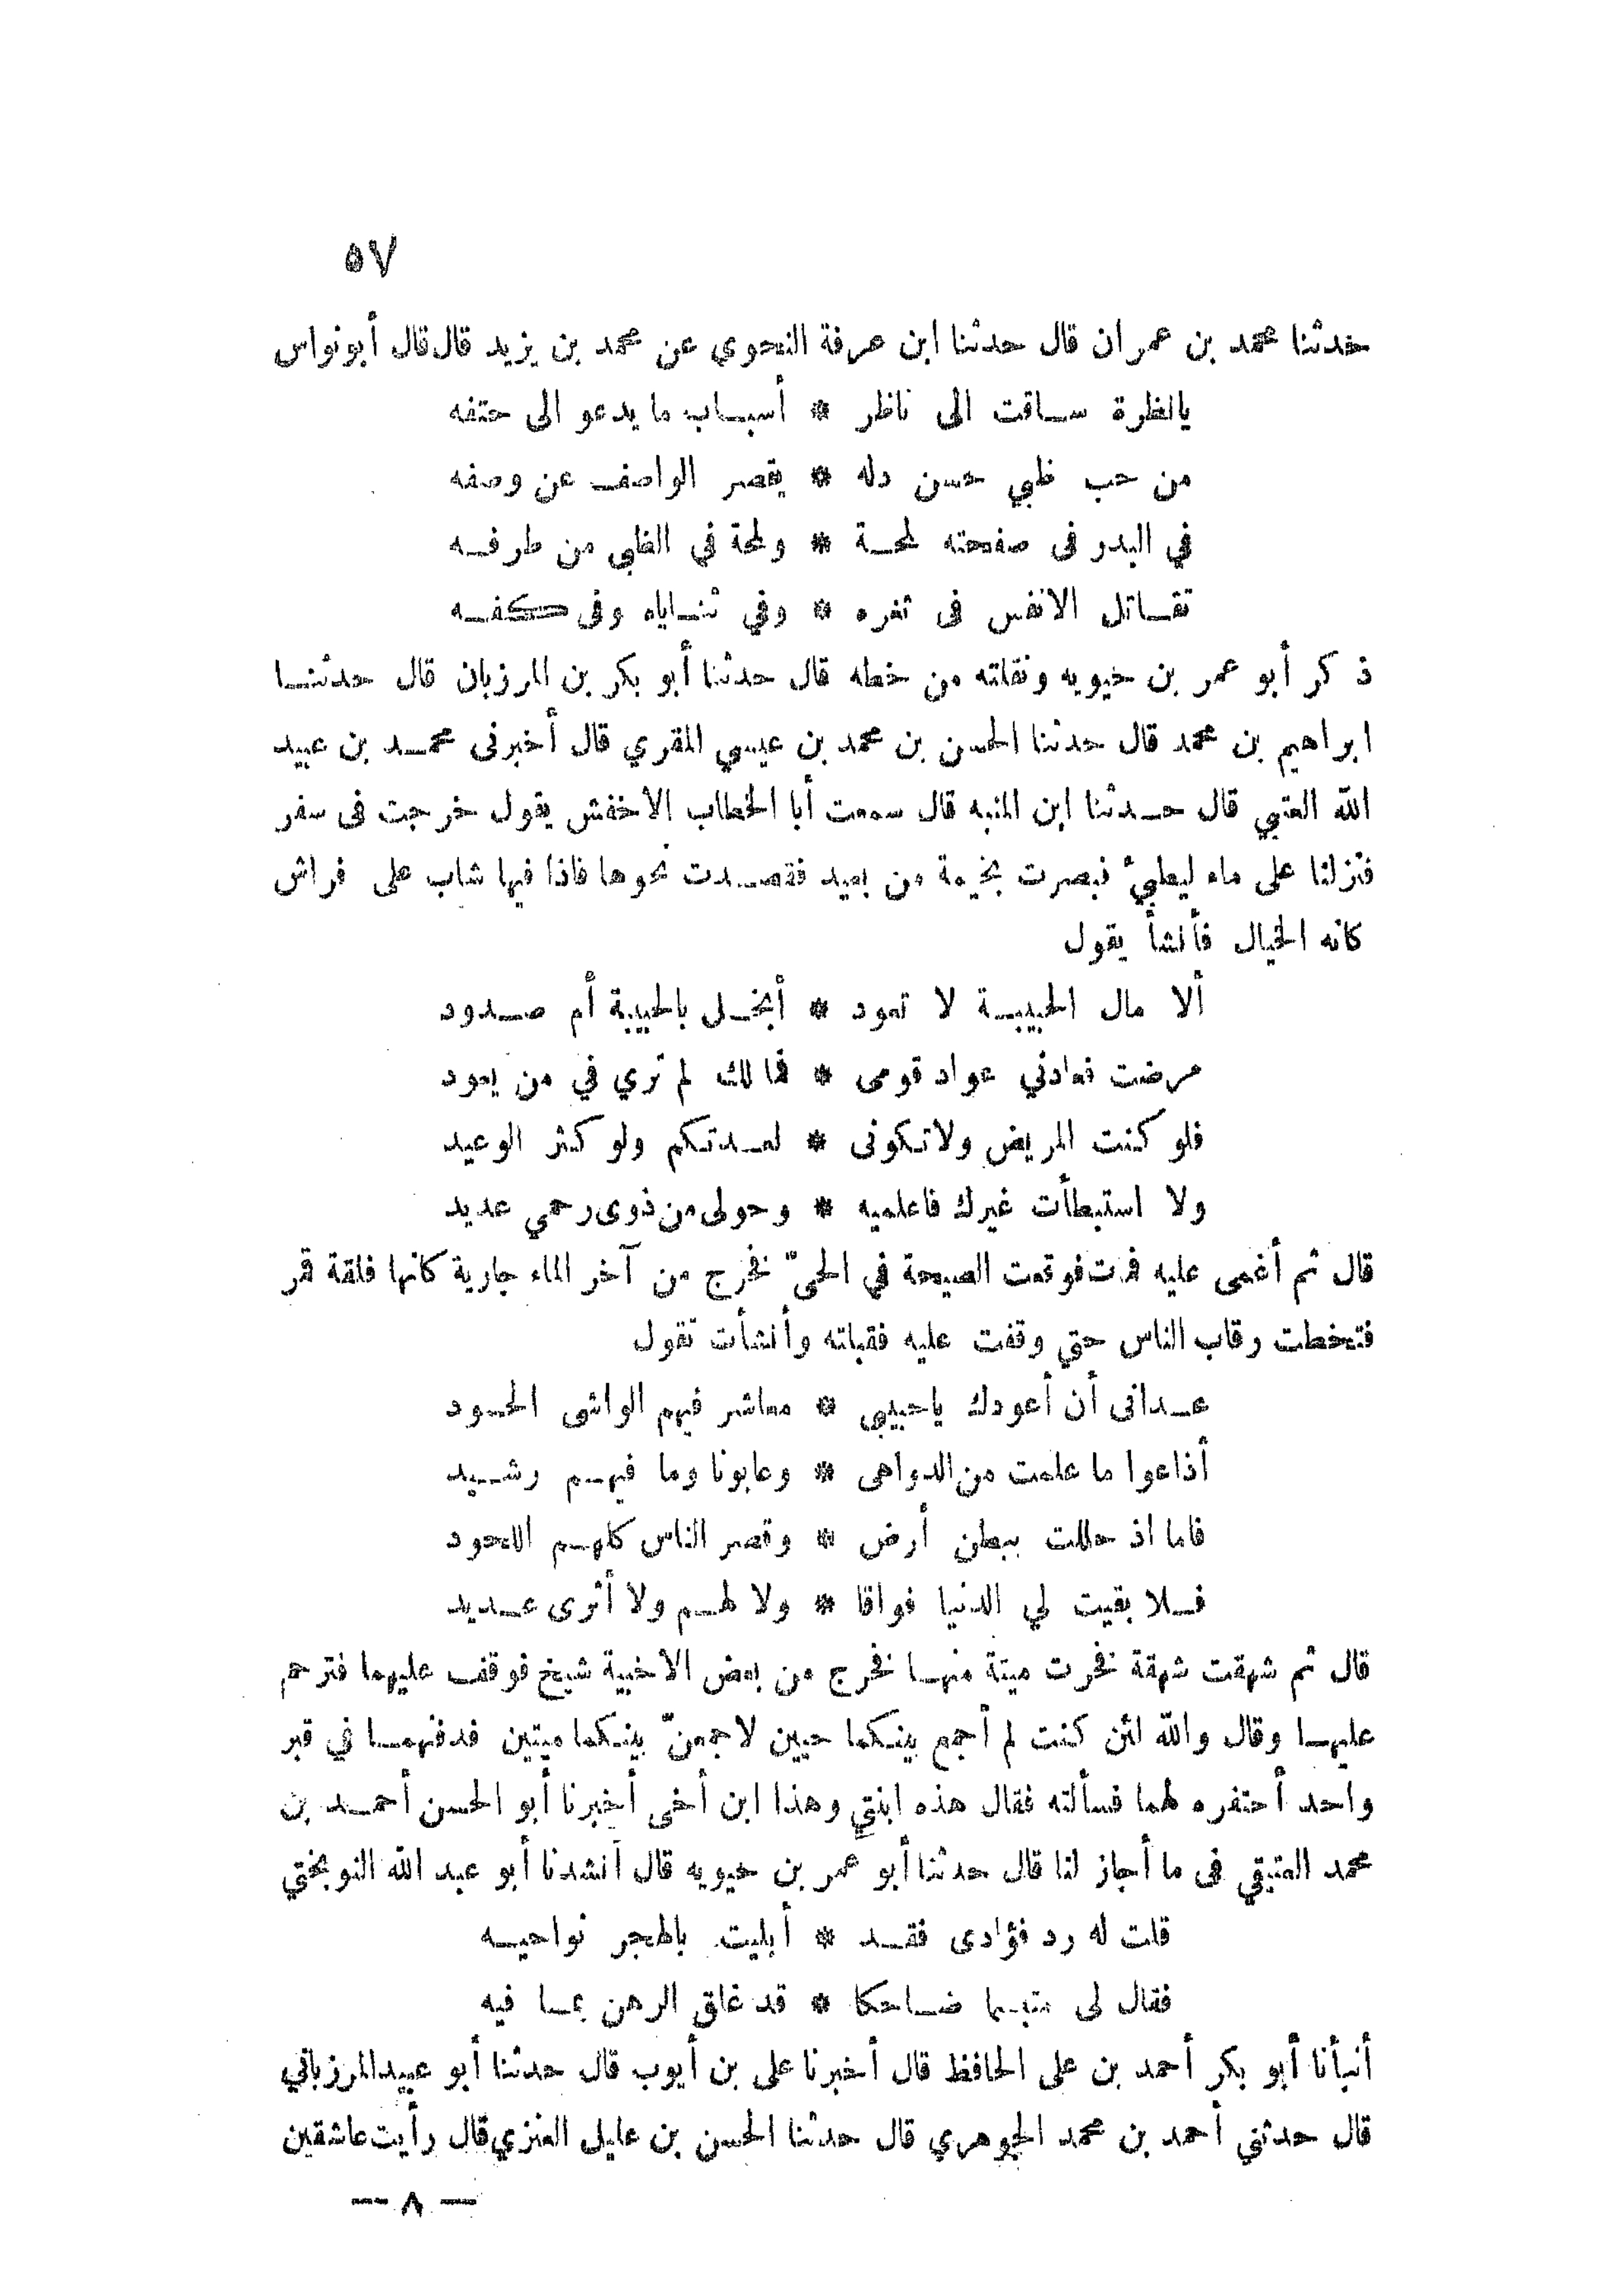 ٥٧
حدثنا محمد بن عمران قال حدثنا ابن عرفة النحوي عن محمد بن يزيد قال قال أبو نواس
يانظرة ساقت الى ناظر * أسباب ما يدعو الى حتفه
من حب ظبي حسن دله * يقصر الواصف عن وصفه
في البدر فى صفحته لمحة * ولمحة في الظبي من طرفه
تقاتل الانفس فى ثغره * وفي ثناياه وفى كفه
ذكر أبو عمر بن حيويه ونقلته من خطه قال حدثنا أبو بكر بن المرزبان قال حدثنا
ابراهيم بن محمد قال حدثنا الحسن بن محمد بن عيسي المقري قال أخبرنى محمد بن عبيد
الله العتبي قال حدثنا ابن المنبه قال سمعت أبا الخطاب الاخفش يقول خرجت فى سفر
فنزلنا على ماء لطيئ فبصرت بخيمة من بعيد فقصدت نحوها فاذا فيها شاب على فراش
كانه الخيال فأنشأ يقول
ألا مال الحبيبة لا تعود * أبخل بالحبيبة أم صدود
مرضت فعادني عواد قومى * فمالك لم تري في من يعود
فلو كنت المريض ولا تكونى * لعدتكم ولو كثر الوعيد
ولا استبطأت غيرك فاعلميه * وحولى من ذوى رحمي عديد
قال ثم أغمى عليه فمات فوقعت الصيحة في الحىّ فخرج من آخر الماء جارية كانها فلقة قمر
فتخطت رقاب الناس حتي وقفت عليه فقبلته وأنشأت تقول
عدانى أن أعودك ياحبيبي * معاشر فيهم الواشى الحسود
أذاعوا ما علمت من الدواهى * وعابونا وما فيهم رشيد
فاما اذ حللت ببطن أرض * وقصر الناس كلهم اللحود
فلا بقيت لي الدنيا فواقا * ولا لهم ولا أثرى عديد
قال ثم شهقت شهقة فخرت ميتة منها فخرج من بعض الاخبية شيخ فوقف عليهما فترحم
عليهما وقال والله لئن كنت لم أجمع بينكما حيين لاجمعنّ بينكما ميتين فدفنهما في قبر
واحد أحتفره لهما فسألته فقال هذه ابنتي وهذا ابن أخى أخبرنا أبو الحسن أحمد بن
محمد العتيقي فى ما أجاز لنا قال حدثنا أبو عمر بن حيويه قال أنشدنا أبو عبد الله النوبختي
قلت له رد فؤادى فقد * أبليت بالهجر نواحيه
فقال لى متبسما ضاحكا * قد غلق الرهن بما فيه
أنبأنا أبو بكر أحمد بن على الحافظ قال أخبرنا على بن أيوب قال حدثنا أبو عبيد المرزباني
قال حدثني أحمد بن محمد الجوهري قال حدثنا الحسن بن عليل العنزي قال رأيت عاشقين
— ٨ —